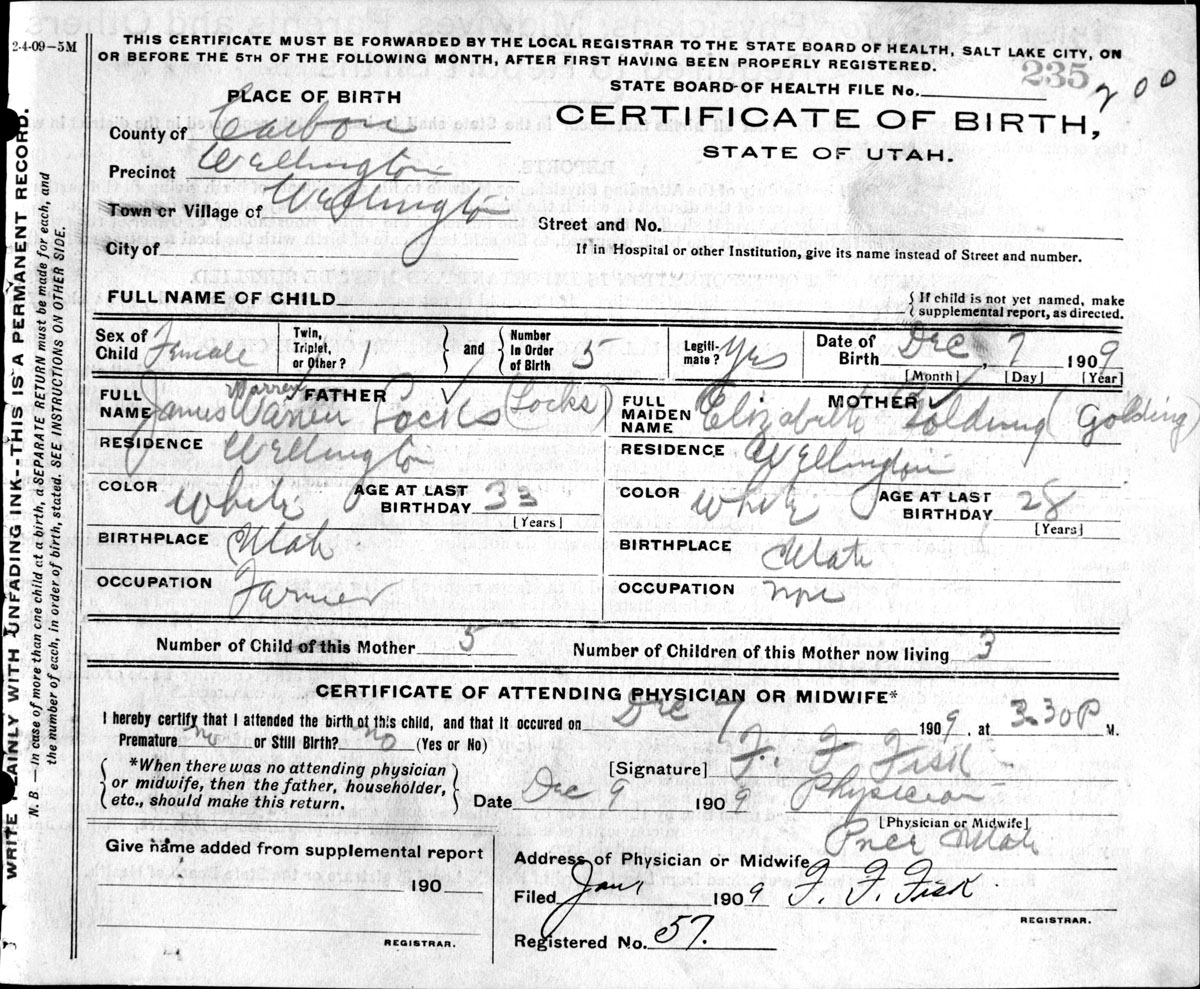 2-4-09–5M
THIS CERTIFICATE MUST BE FORWARDED BY THE LOCAL REGISTRAR TO THE STATE BOARD OF HEALTH, SALT LAKE CITY, ON
OR BEFORE THE 5TH OF THE FOLLOWING MONTH, AFTER FIRST HAVING BEEN PROPERLY REGISTERED.
235
STATE BOARD OF HEALTH FILE No. 200
PLACE OF BIRTH
CERTIFICATE OF BIRTH,
STATE OF UTAH.
County of Carbon
Precinct Wellington
Town or Village of Wellington
Street and No.
City of
If in Hospital or other Institution, give its name instead of Street and number.
FULL NAME OF CHILD
{ If child is not yet named, make
supplemental report, as directed.
Sex of Child Female
Twin, Triplet, or Other?
} and {
Number in Order of Birth 5
Legiti- mate? Yes
Date of Birth Dec, 7 1909
[Month] [Day] [Year]
FATHER
Warren
FULL NAME James Warren Locks (Locks)
MOTHER
FULL MAIDEN NAME Elizabeth Golding (Golding)
RESIDENCE Wellington
RESIDENCE Wellington
COLOR White
AGE AT LAST BIRTHDAY 33
[Years]
COLOR White
AGE AT LAST BIRTHDAY 28
[Years]
BIRTHPLACE Utah
BIRTHPLACE Utah
OCCUPATION Farmer
OCCUPATION
Number of Child of this Mother 5
Number of Children of this Mother now living 3
CERTIFICATE OF ATTENDING PHYSICIAN OR MIDWIFE*
I hereby certify that I attended the birth of this child, and that it occured on Dec 7 1909, at 3.30 P M.
Premature No or Still Birth? No (Yes or No)
*When there was no attending physician
or midwife, then the father, householder,
etc., should make this return.
[Signature] F. F. Fisk
Date Dec 9 1909 Physician
[Physician or Midwife]
Give name added from supplemental report
Address of Physician or Midwife Price Utah
190
Filed Jan 1909 F. F. Fisk
REGISTRAR.
REGISTRAR.
Registered No. 57.
WRITE PLAINLY WITH UNFADING INK--THIS IS A PERMANENT RECORD.
N. B.—In case of more than one child at a birth, a SEPARATE RETURN must be made for each, and
the number of each, in order of birth, stated. SEE INSTRUCTIONS ON OTHER SIDE.